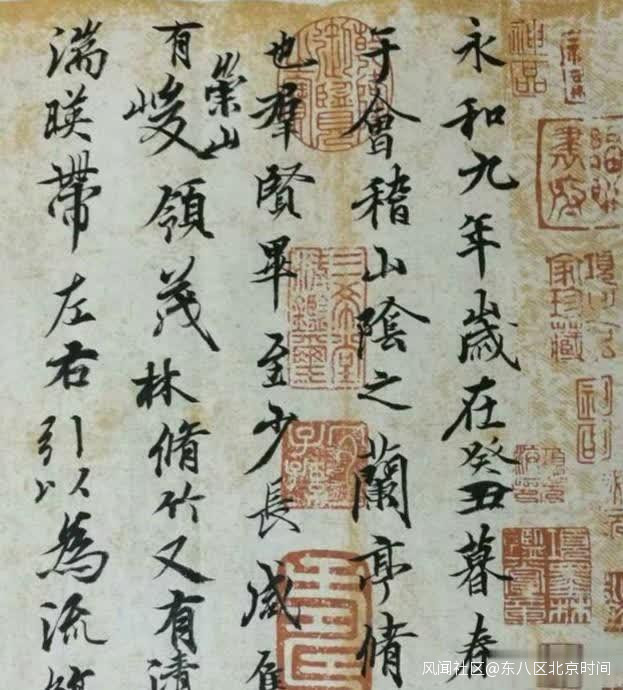 神品
家珍藏
永和九年歲在癸丑暮春
于會稽山陰之蘭亭脩
三希堂精鑑璽
也羣賢畢至少長咸
有崇山峻領茂林脩竹又有清
湍暎帶左右引以為流
风闻社区@东八区北京时间